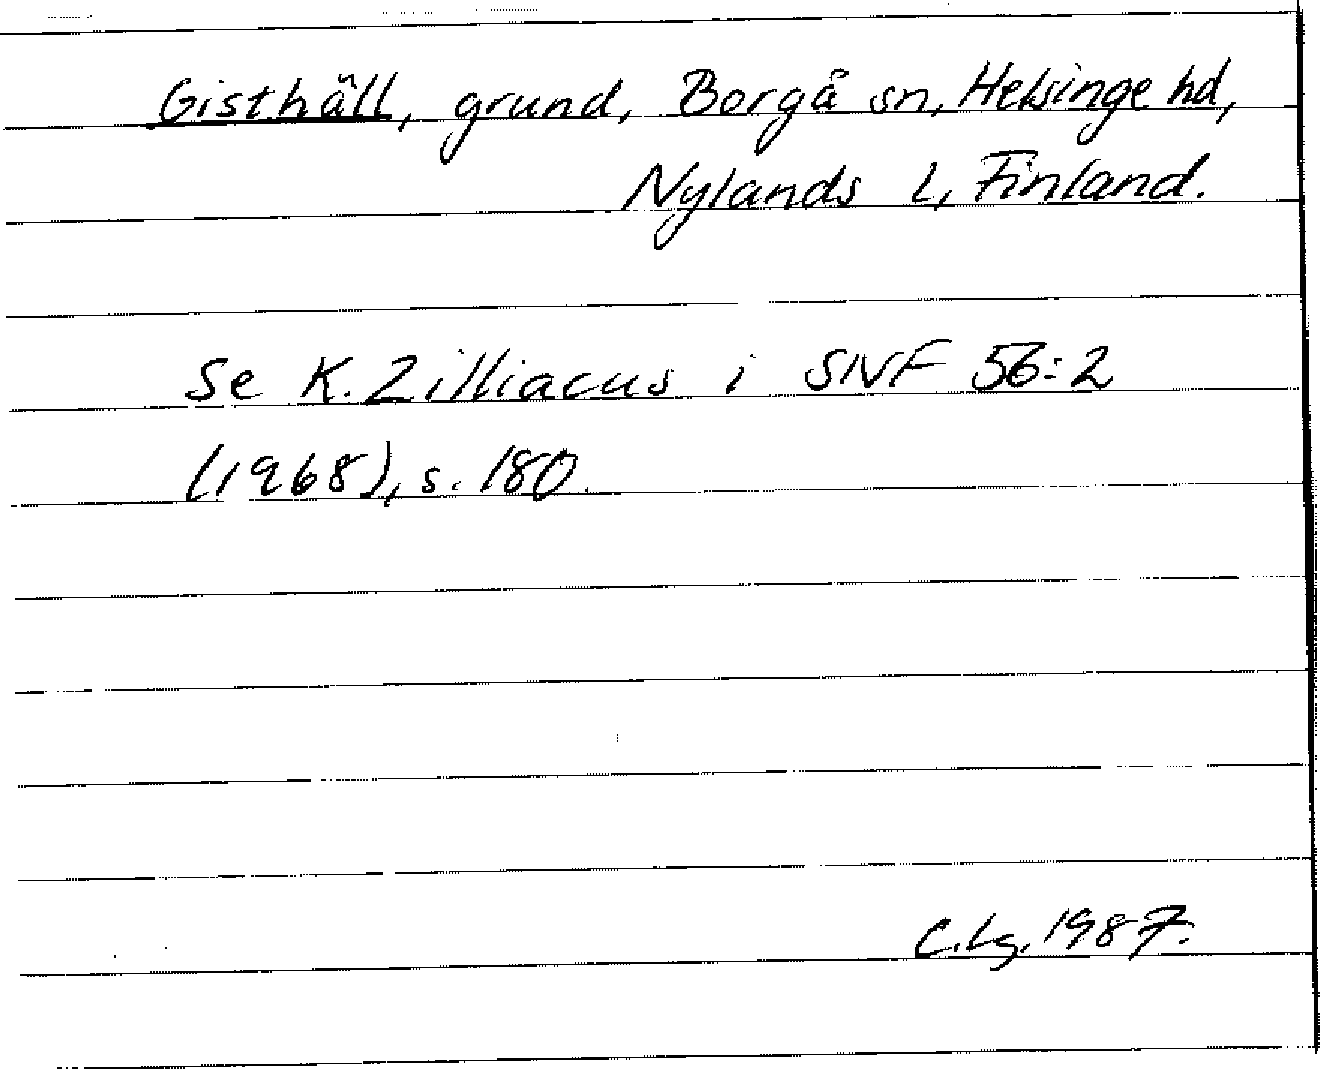 Gisthäll, grund, Borgå sn, Helsinge hd,
Nylands l, Finland.
Se K. Zilliacus i SNF 56:2
(1968), s. 180.
C. Lg. 1987.